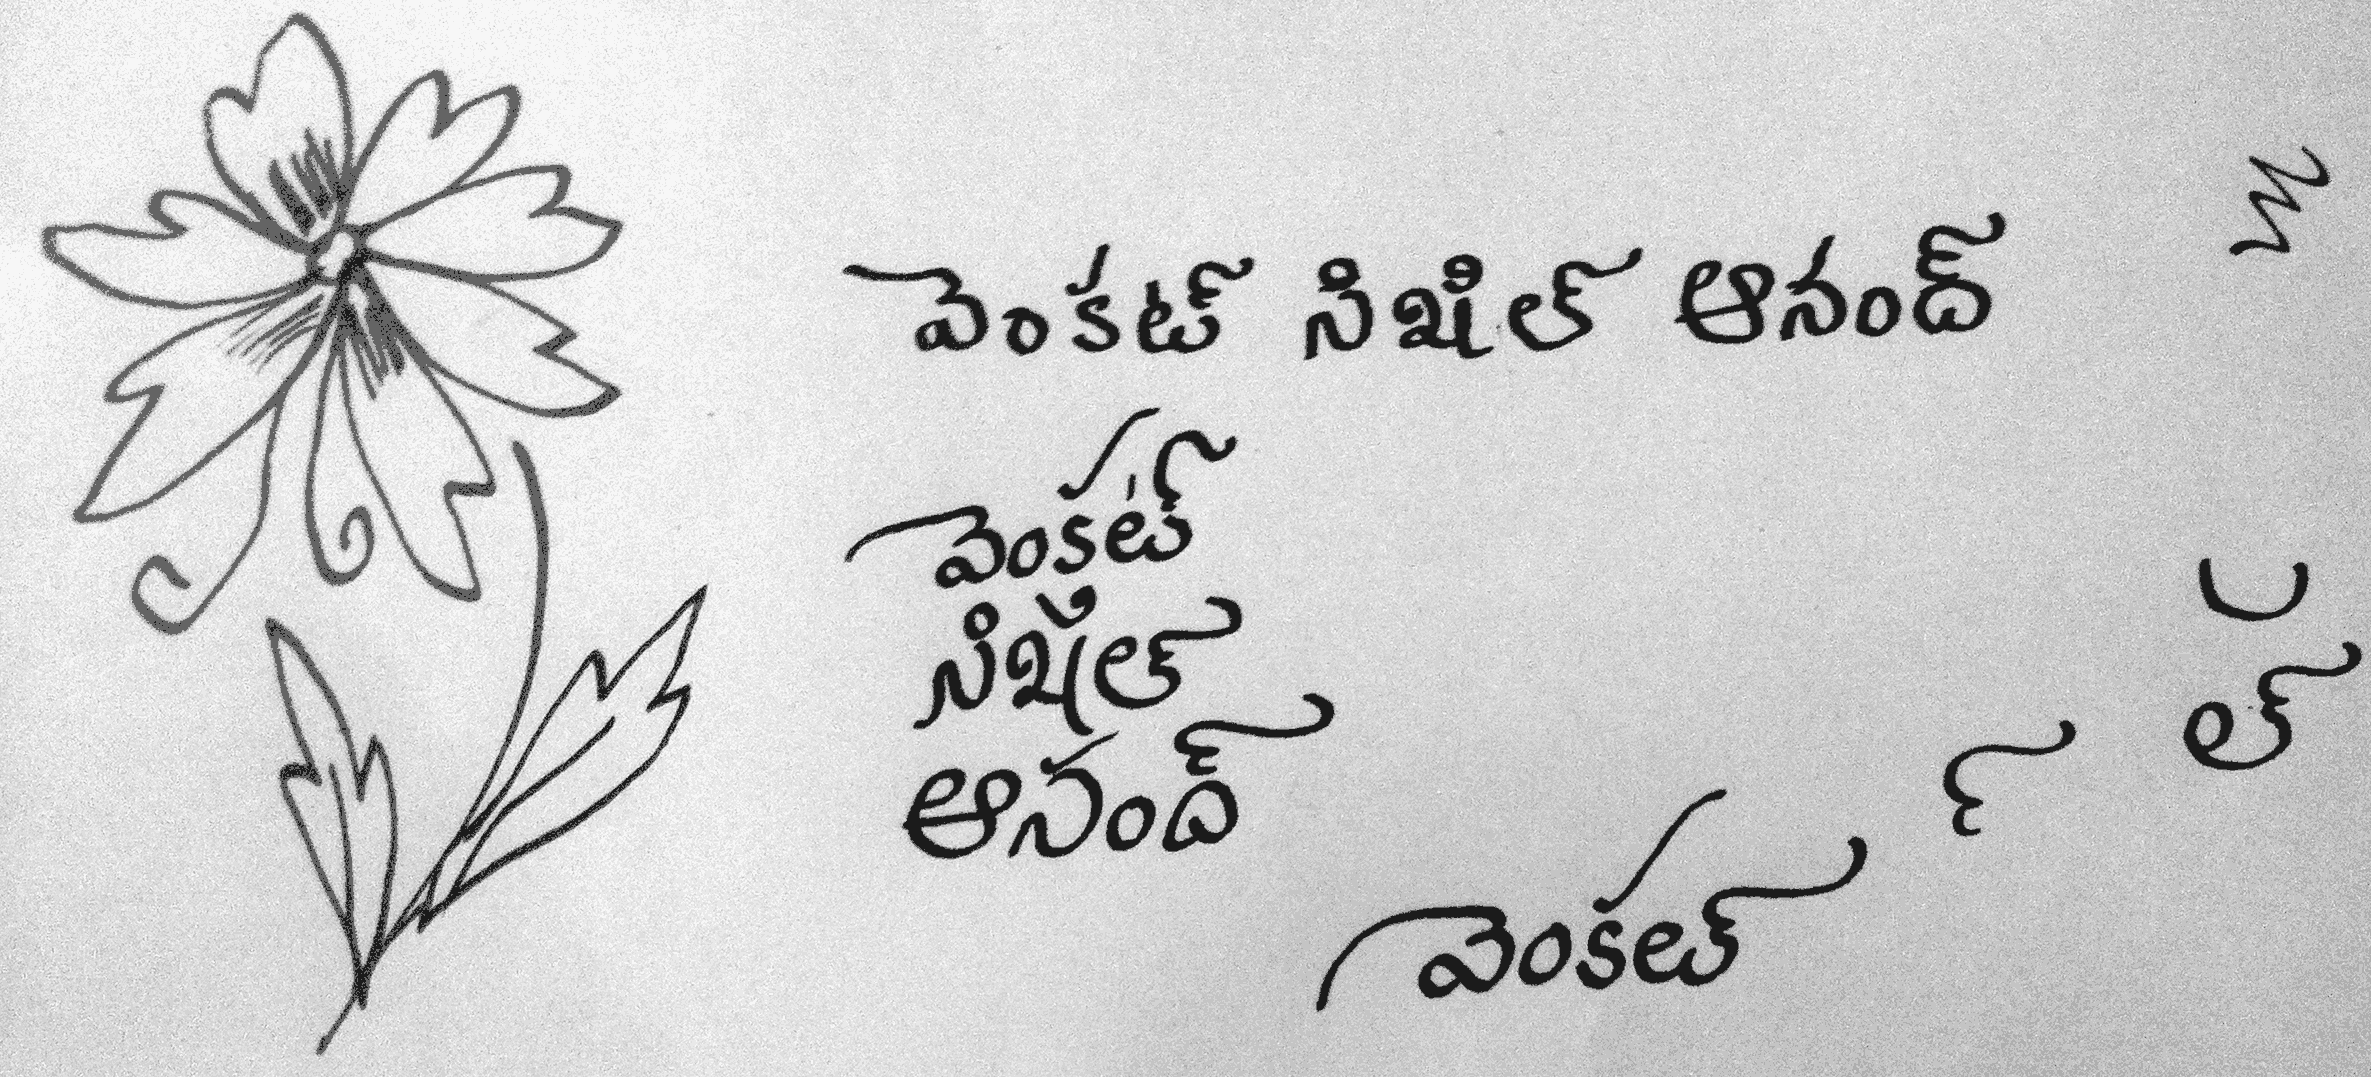 వెంకట్ నిఖిల్ ఆనంద్
వెంకట్
నిఖిల్
ఆనంద్
ల్
వెంకట్